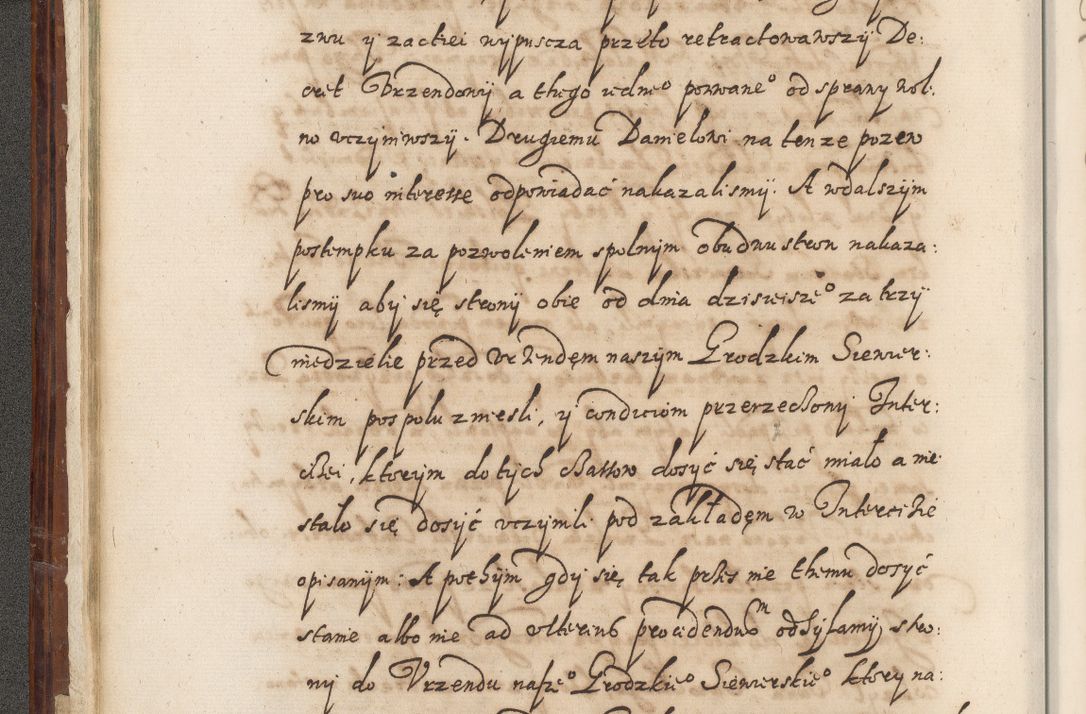 zwu y zactiei wypuscza przeto retractowawszy De:
cret Vrzendowy a thego iedneº pozwaneº od sprawy wol:
no vczyniwszy. Drugiemu Danielowi na tenze pozew
pro suo interesse odpowiadać nakazalismy. A wdalszym
postempku za pozwoleniem spolnym obudwu stron nakaza:
lismy aby się strony obie od dnia dzisieiszeº za trzy
niedzielie przed Vrzendem naszym Grodzkim Siewier:
skim pospolu znieśli, y condiciom przerzeczony Inter:
cizei, ktorym dotych czassow dosyć się stać miało a nie
stało się dosyć vczynili pod zakładem w Intercizie
opisanym: A pothym gdy się tak przes nie themu dosyć
stanie albo nie ad vlterius procedendum odsyłamy stro:
ny do Vrzendu naszeº Grodzkieº Siewierskieº ktory na: